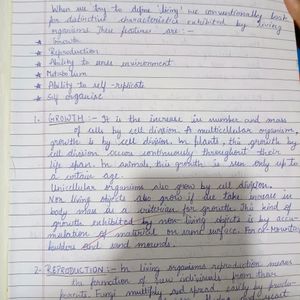 When we try to define 'living' we conventionally look
for distinctive characteristics exhibited by living
organisms. These features are :-
★ Growth
★ Reproduction
★ Ability to sense environment
★ Metabolism
★ Ability to self-replicate
★ Self organise
1- GROWTH :- It is the increase in number and mass
of cells by cell division. A multicellular organism,
growth is by cell division. In plants, this growth by
cell division occurs continuously throughout their
life span. In animals, this growth is seen only up to
a certain age.
Unicellular organisms also grow by cell division.
Non living objects also grow if we take increase in
body mass as a criterion for growth. The kind of
growth exhibited by non-living objects is by accu-
mulation of material on same surface. For ex- Mountai
boulders and sand mounds.
2- REPRODUCTION :- In living organisms reproduction means
the formation of new individuals from their
parents. Fungi multiply and spread easily by produc-